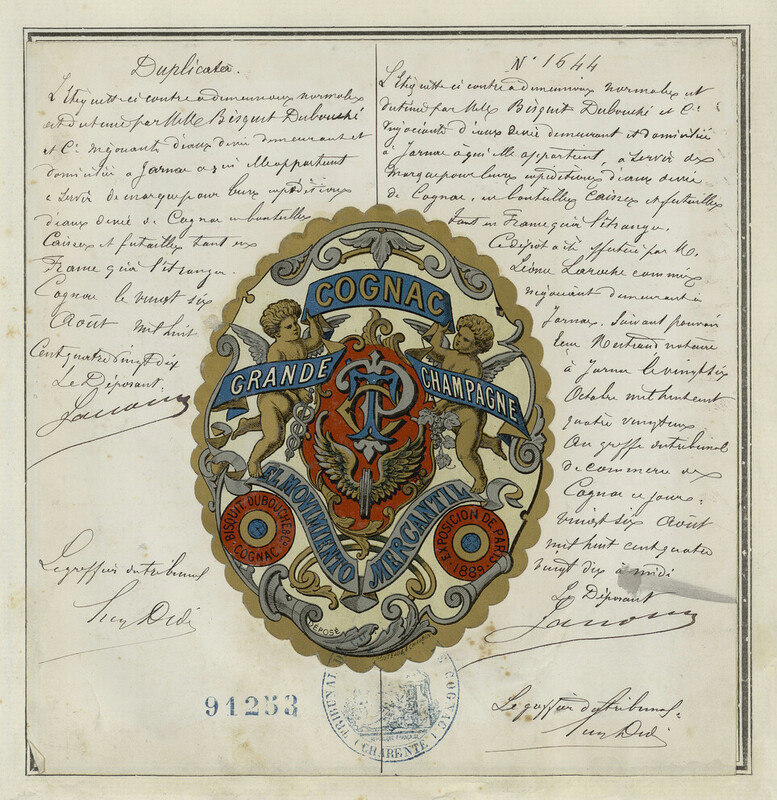 Duplicata.
L'Etiquette ci contre a dimensions normales
est détenue par MM. Bisquit Dubouché
et Cie négociants d'eaux de vie demeurant et
domiciliés à Jarnac à qui elle appartient
à servir de marque pour leurs expéditions
d'eaux de vie de Cognac en bouteilles
Caisses et futailles tant en
France qu'à l'étranger.
Cognac le vingt six
Août mil huit
Cent quatre vingt dix
Le Déposant
Le greffier du tribunal
N° 1644
L'Etiquette ci contre a dimensions normales est
détenue par MM. Bisquit Dubouché et Cie
négociants d'eaux de vie demeurant et domiciliés
à Jarnac à qui elle appartient, à servir de
marque pour leurs expéditions d'eaux de vie
de Cognac, en bouteilles Caisses et futailles
tant en France qu'à l'étranger.
Ce dépôt a été effectué par M.
Léonce Laroche commis
négociant demeurant à
Jarnac, suivant pouvoir
Bertrand notaire
à Jarnac le vingt six
Octobre mil huit cent
quatre vingt deux
Au greffe du tribunal
de commerce de
Cognac ce jour
vingt six Août
mil huit cent quatre
vingt dix à midi
Le Déposant
Le greffier du tribunal
COGNAC
GRANDE CHAMPAGNE
EL MOVIMIENTO MERCANTIL
BISQUIT DUBOUCHÉ & Co
COGNAC
EXPOSICION DE PARIS
1889
DÉPOSÉ
91253
TRIBUNAL DE COGNAC
CHARENTE